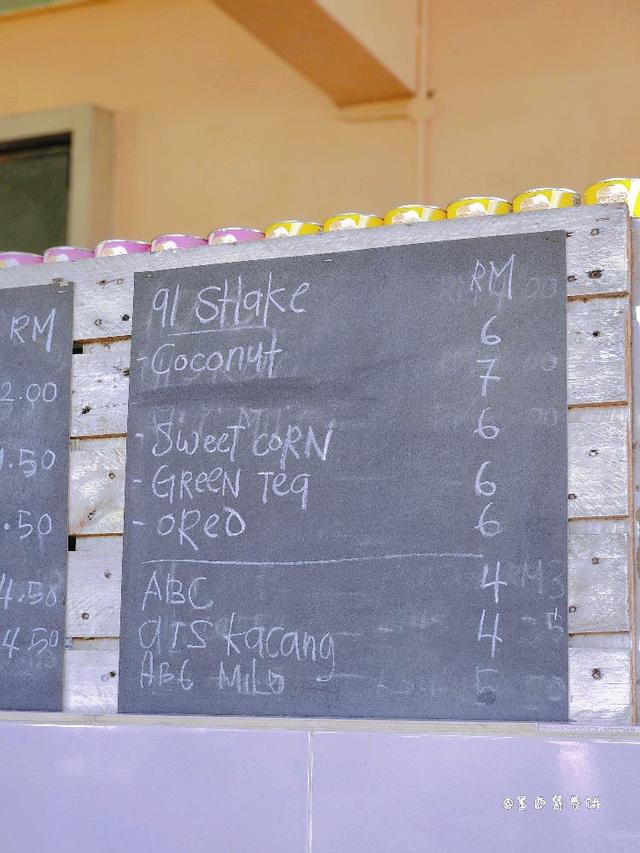 RM
2.00
1.50
.50
4.50
4.50
91 SHake RM
- Coconut 6
7
- Sweet coRN 6
- GReeN Tea 6
- oReo 6
ABC 4
aIS kacang 4
ABC MILO 5
@墨西哥卷饼